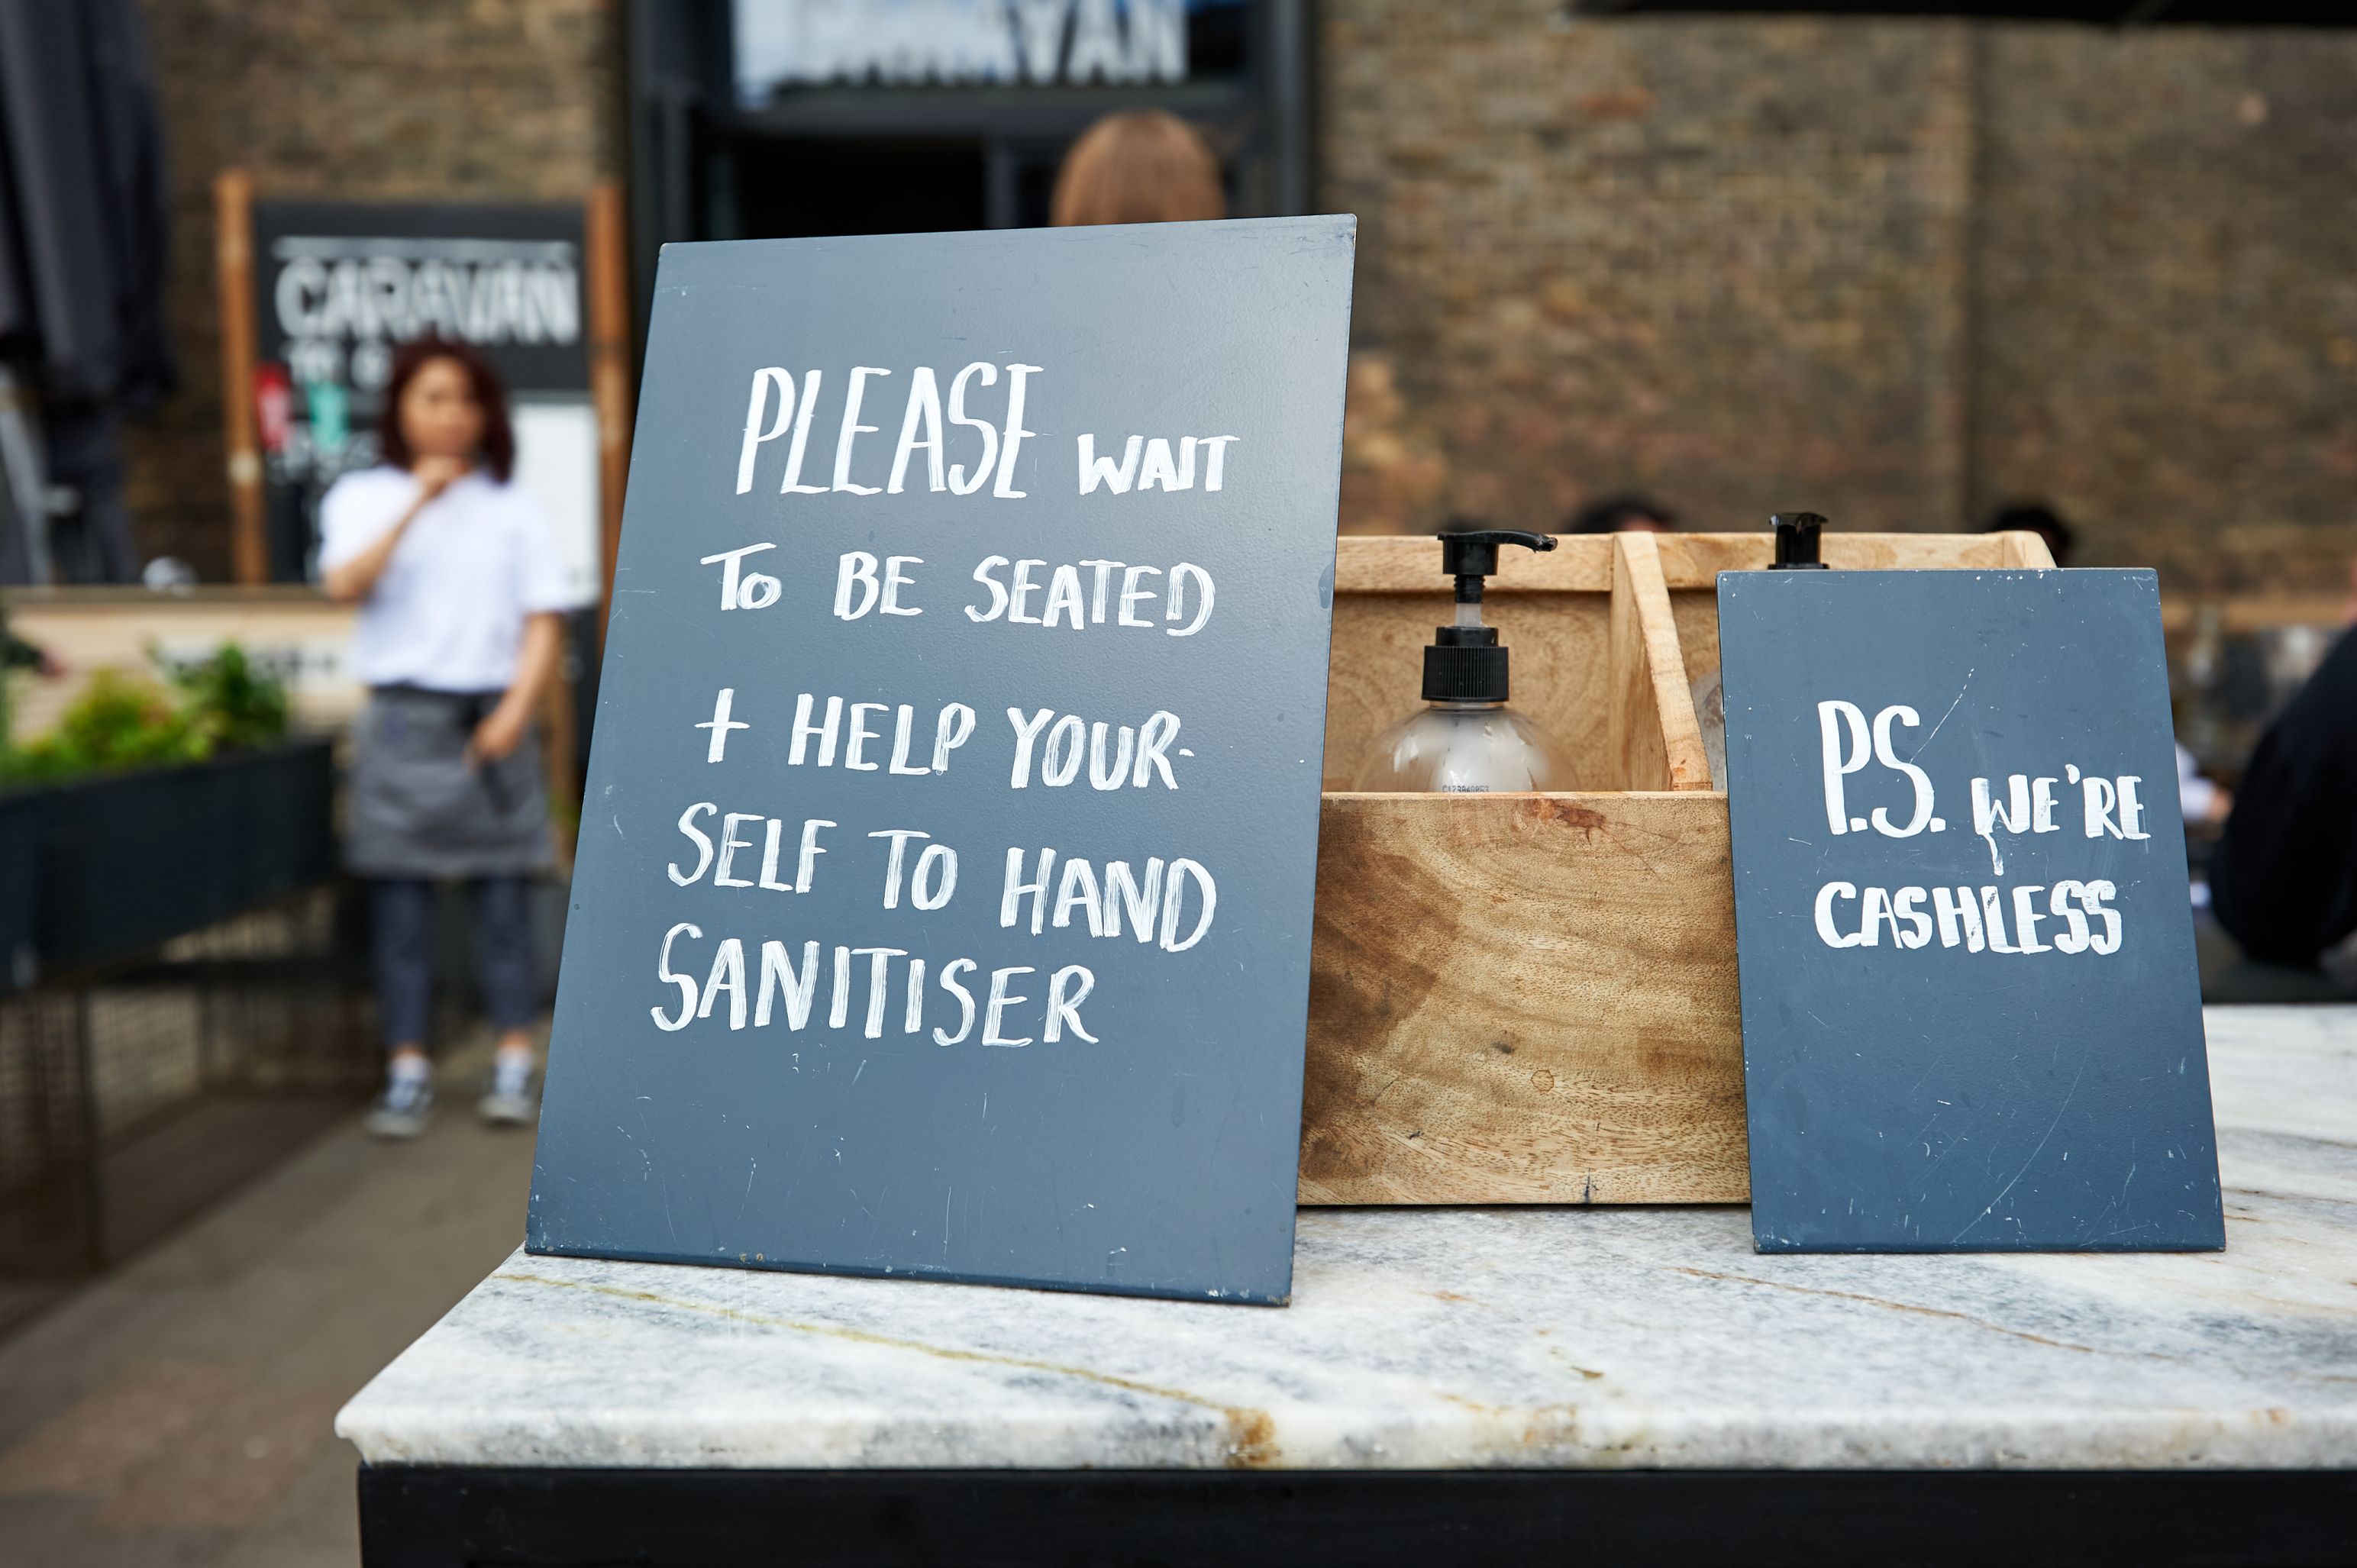 CARAVAN
PLEASE WAIT
TO BE SEATED
+ HELP YOUR-
SELF TO HAND
SANITISER
P.S. WE'RE
CASHLESS